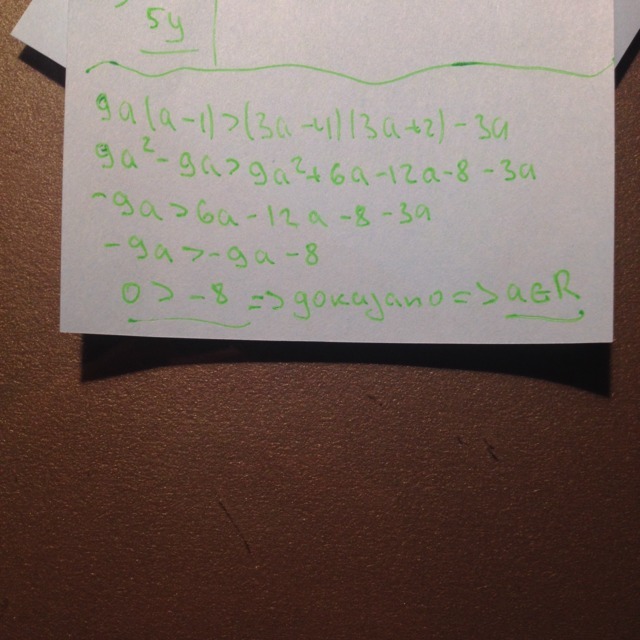 5y
9a(a-1)>(3a-4)(3a+2)-3a
9a²-9a>9a²+6a-12a-8-3a
-9a>6a-12a-8-3a
-9a>-9a-8
0>-8=>доказано=>a∈R